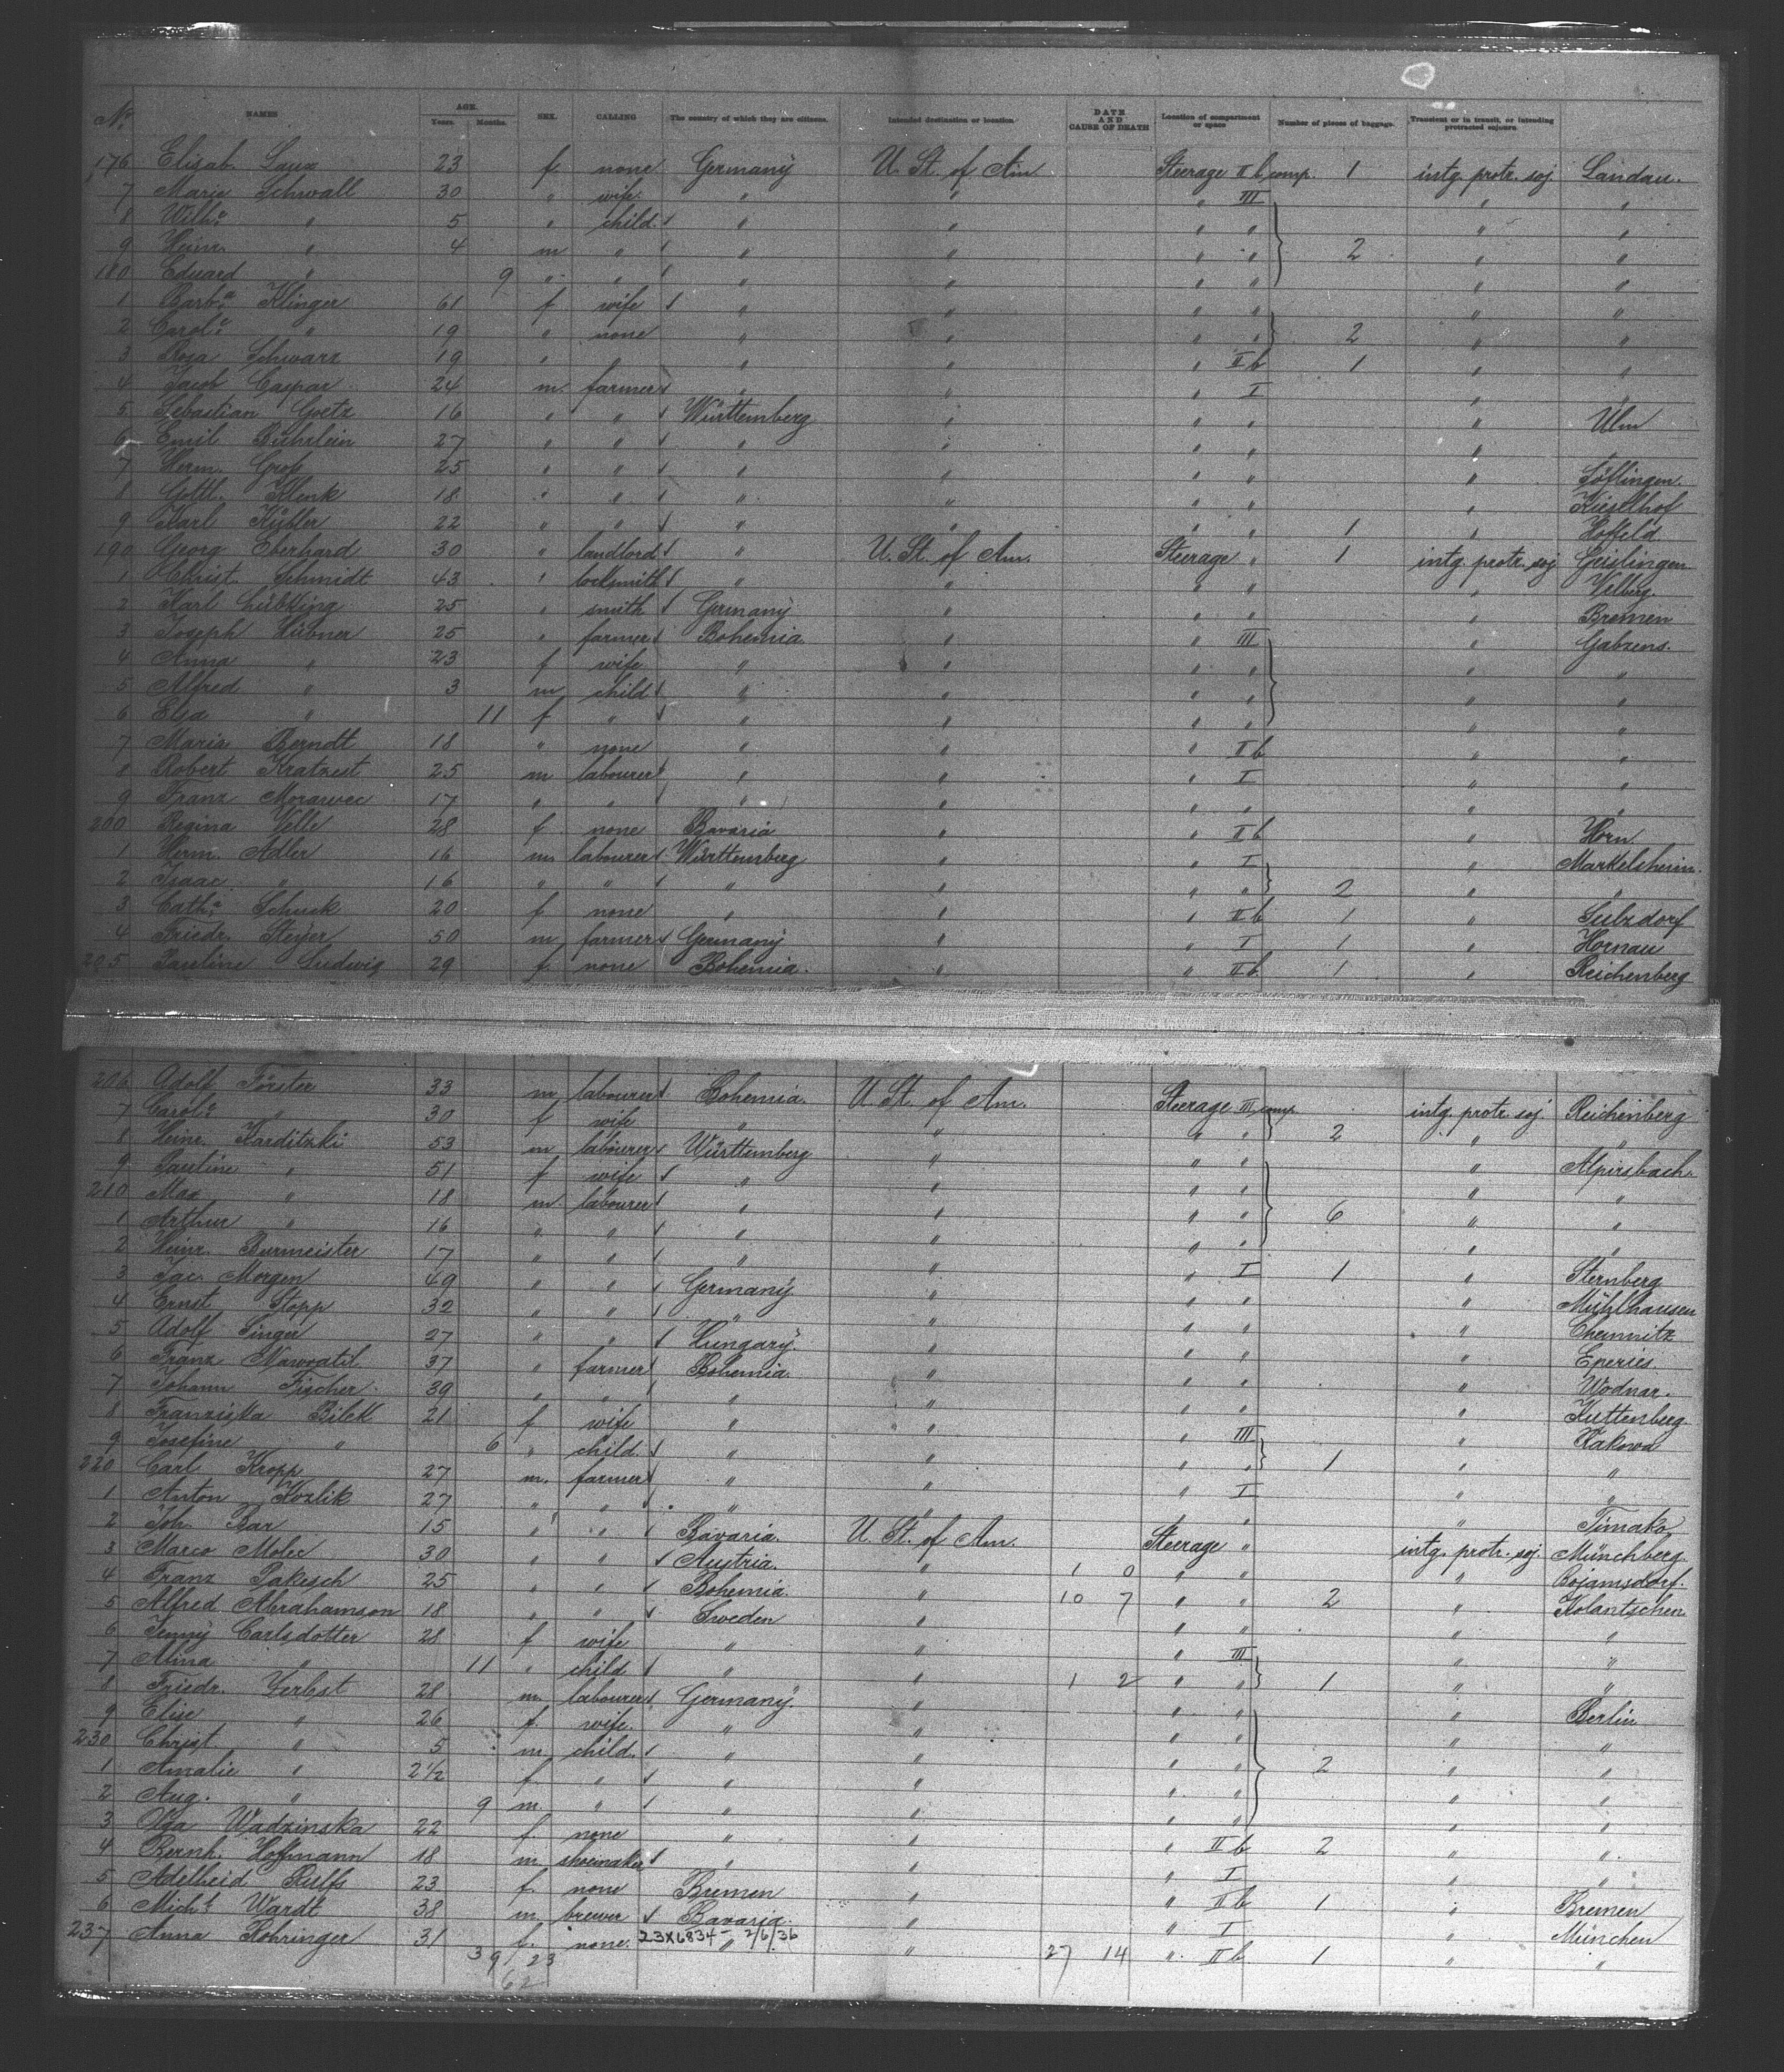 No. NAMES AGE. Years. Months. SEX. CALLING The country of which they are citizens. Intended destination or location DATE AND CAUSE OF DEATH Location of compartment or space Number of pieces of baggage. Transient or in transit, or intending protracted sojourn
176 Elisab. Laux 23 f. none Germany U. St. of Am. Steerage II b comp. 1 intg. protr. soj. Landau.
7 Marie Schwall 30 " wife " " " III " "
8 Wilh.e " 5 " child " " " " " "
9 Heinr. " 4 m " " " " " 2 " "
180 Eduard " 9 " " " " " " " "
1 Barb.a Klinger 61 f. wife " " " " " "
2 Carol.e " 19 " none " " " " 2 " "
3 Rosa Schwarz 19 " " " " " II b 1 " "
4 Jacob Caspar 24 m. farmer " " " I " "
5 Sebastian Goetz 16 " " Württemberg " " " " Ulm
6 Emil Bührlein 27 " " " " " " " "
7 Herm. Groß 25 " " " " " " " Söflingen.
8 Gottl. Klenk 18 " " " " " " " Kieselhof
9 Karl Kübler 22 " " " " " " 1 " Hoffeld
190 Georg Eberhard 30 " landlord " U. St. of Am. Steerage " 1 intg. protr. soj. Geislingen
1 Christ. Schmidt 43 " locksmith " " " " " Velberg.
2 Karl Lübking 25 " smith Germany " " " " Bremen
3 Joseph Hübner 25 " farmer Bohemia " " III " Gabzens.
4 Anna " 23 f wife " " " " " "
5 Alfred " 3 m child " " " " " "
6 Elsa " 11 f " " " " " " "
7 Maria Berndt 18 " none " " " II b " "
8 Robert Kratzert 25 m labourer " " " I " "
9 Franz Morawec 17 " " " " " " " "
200 Regina Velle 28 f. none Bavaria " " II b " Horn
1 Herm. Adler 16 m. labourer Württemberg " " I " Markelsheim.
2 Isaac " 16 " " " " " " 2 " "
3 Cath.a Schuck 20 f. none " " " II b 1 " Sulzdorf
4 Friedr. Steyer 50 m. farmer Germany " " I 1 " Hornau
205 Pauline Ludwig 29 f. none Bohemia. " " II b 1 " Reichenberg
206 Adolf Förster 33 m labourer Bohemia. U. St. of Am. Steerage III comp. intg. protr. soj. Reichenberg
7 Carol.e " 30 f. wife " " " " 2 " "
8 Heinr. Karditzki 53 m labourer Württemberg " " " " Alpirsbach.
9 Pauline " 51 f wife " " " " " "
210 Max " 18 m. labourer " " " " 6 " "
1 Arthur " 16 " " " " " " " "
2 Heinr. Burmeister 17 " " " " " I 1 " Sternberg
3 Jac. Morgen 49 " " Germany " " " " Mühlhausen
4 Ernst Stopp 32 " " " " " " " Chemnitz
5 Adolf Singer 27 " " Hungary. " " " " Eperies.
6 Franz Nawratil 37 " farmer Bohemia. " " " " Wodnar.
7 Johann Fischer 39 " " " " " " " Kuttenberg
8 Franziska Bilek 21 f wife " " " III " Kakowa
9 Josefine " 6 " child " " " " 1 " "
220 Carl Kropp 27 m. farmer " " " I " "
1 Anton Kozlik 27 " " " " " " " Timako
2 Joh. Bar 15 " " Bavaria. U. St. of Am. Steerage " intg. protr. soj. Münchberg.
3 Marco Molec 30 " " Austria. " 1 0 " " " Cojamsdorf.
4 Franz Pakesch 25 " " Bohemia. " 10 7 " " 2 " Kolantschen
5 Alfred Abrahamson 18 " " Sweden " " " " "
6 Jenny Carlsdotter 28 f. wife " " " III " "
7 Alma " 11 " child " " 1 2 " " 1 " "
8 Friedr. Zerbst 28 m. labourer Germany. " " " " Berlin
9 Elise " 26 f. wife. " " " " " "
230 Christ " 5 m child. " " " " 2 " "
1 Amalie " 2½ f. " " " " " " "
2 Aug. " 9 m. " " " " " " "
3 Olga Wadzinska 22 f. none " " " II b 2 " "
4 Bernh. Hoffmann 18 m shoemaker " " " I " "
5 Adelheid Rulfs 23 f. none Bremen " " II b 1 " Bremen
6 Mich.l Wardt 38 m. brewer Bavaria. " " I " München
237 Anna Rohringer 31 f. none. " " 27 14 " II b 1 " "
23X6834 - 2/6/36
39 / 23
62